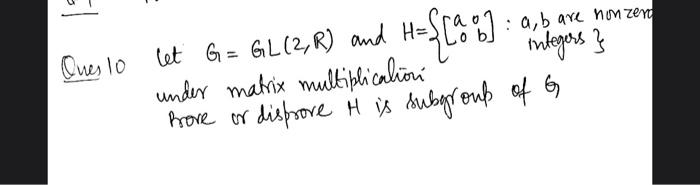 Ques 10 let G = GL(2,R) and H={[a 0 0 b] : a,b are nonzero integers }
under matrix multiplication
Prove or disprove H is subgroup of G